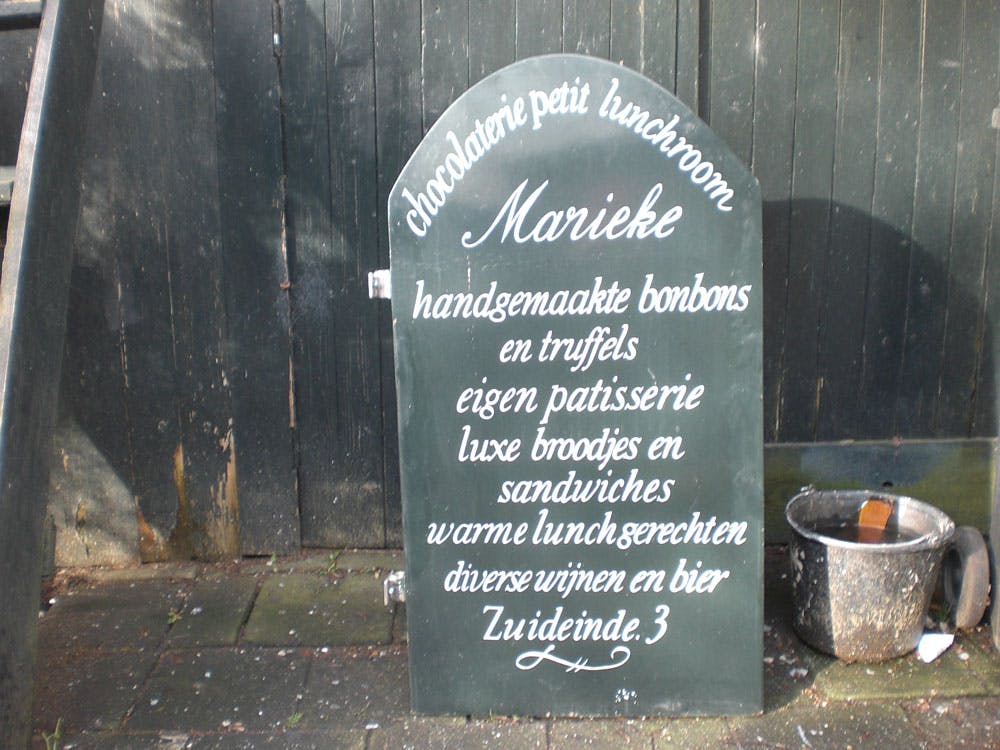 chocolaterie petit lunchroom
Marieke
handgemaakte bonbons
en truffels
eigen patisserie
luxe broodjes en
sandwiches
warme lunchgerechten
diverse wijnen en bier
Zuideinde. 3